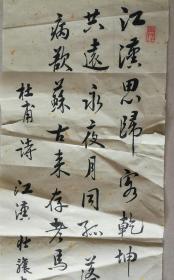 江漢思歸客乾坤
共遠永夜月同孤落
病欲蘇古来存老馬
杜甫詩
江漢